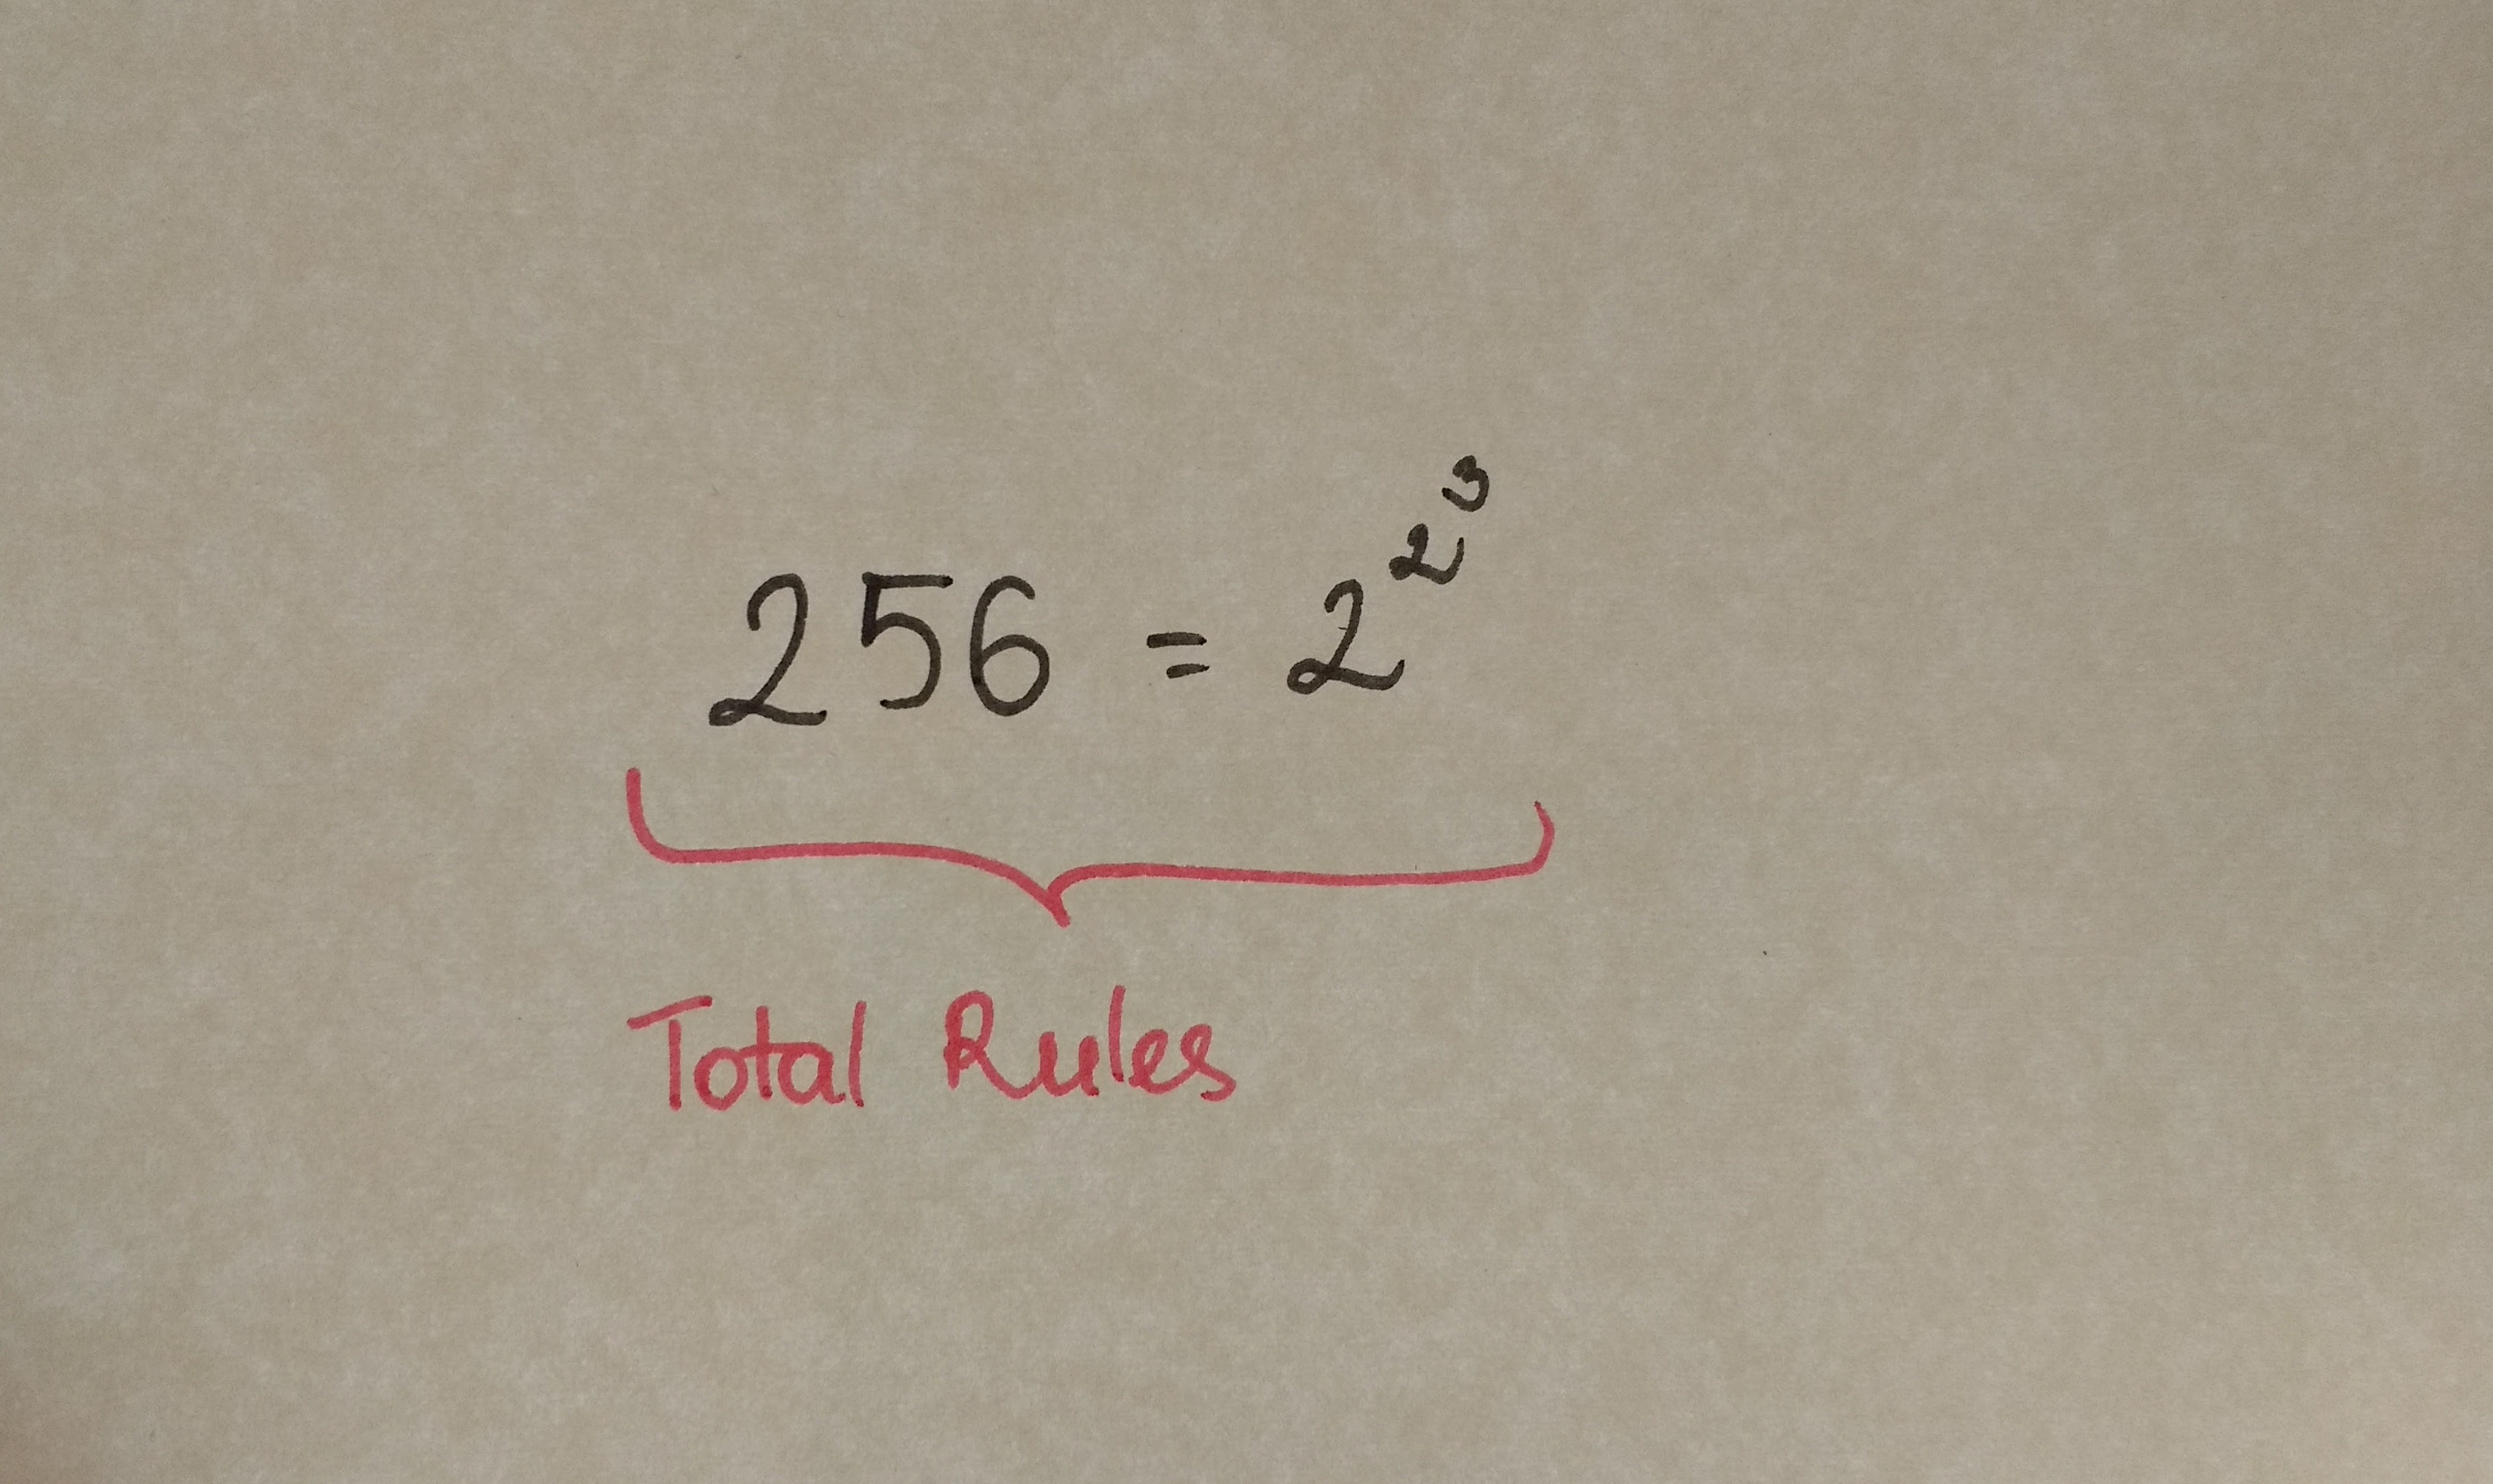 256 = 2^2^3
Total Rules